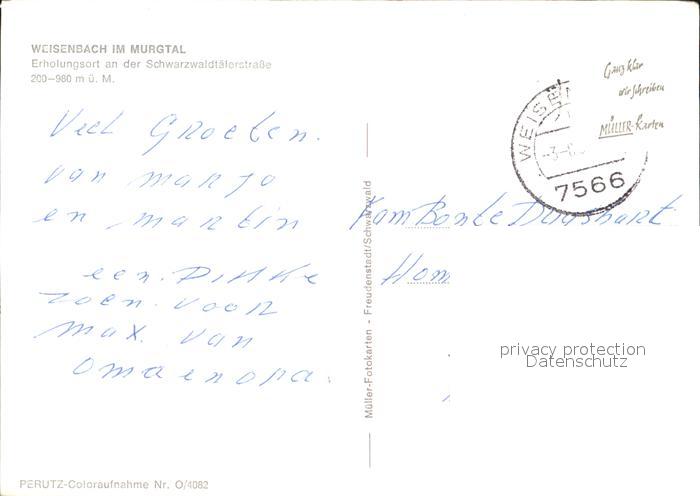 WEISENBACH IM MURGTAL
Erholungsort an der Schwarzwaldtälerstraße
200–980 m ü. M.
Veel Groeten.
van Marja
en Martin
een. Dikke
zoen. voor
Max. van
oma en opa.
PERUTZ-Coloraufnahme Nr. O/4082
Müller-Fotokarten - Freudenstadt/Schwarzwald
Ganz klar
wir schreiben
MÜLLER-Karten
WEISE
7566
Fam Bonte
Hom
privacy protection
Datenschutz